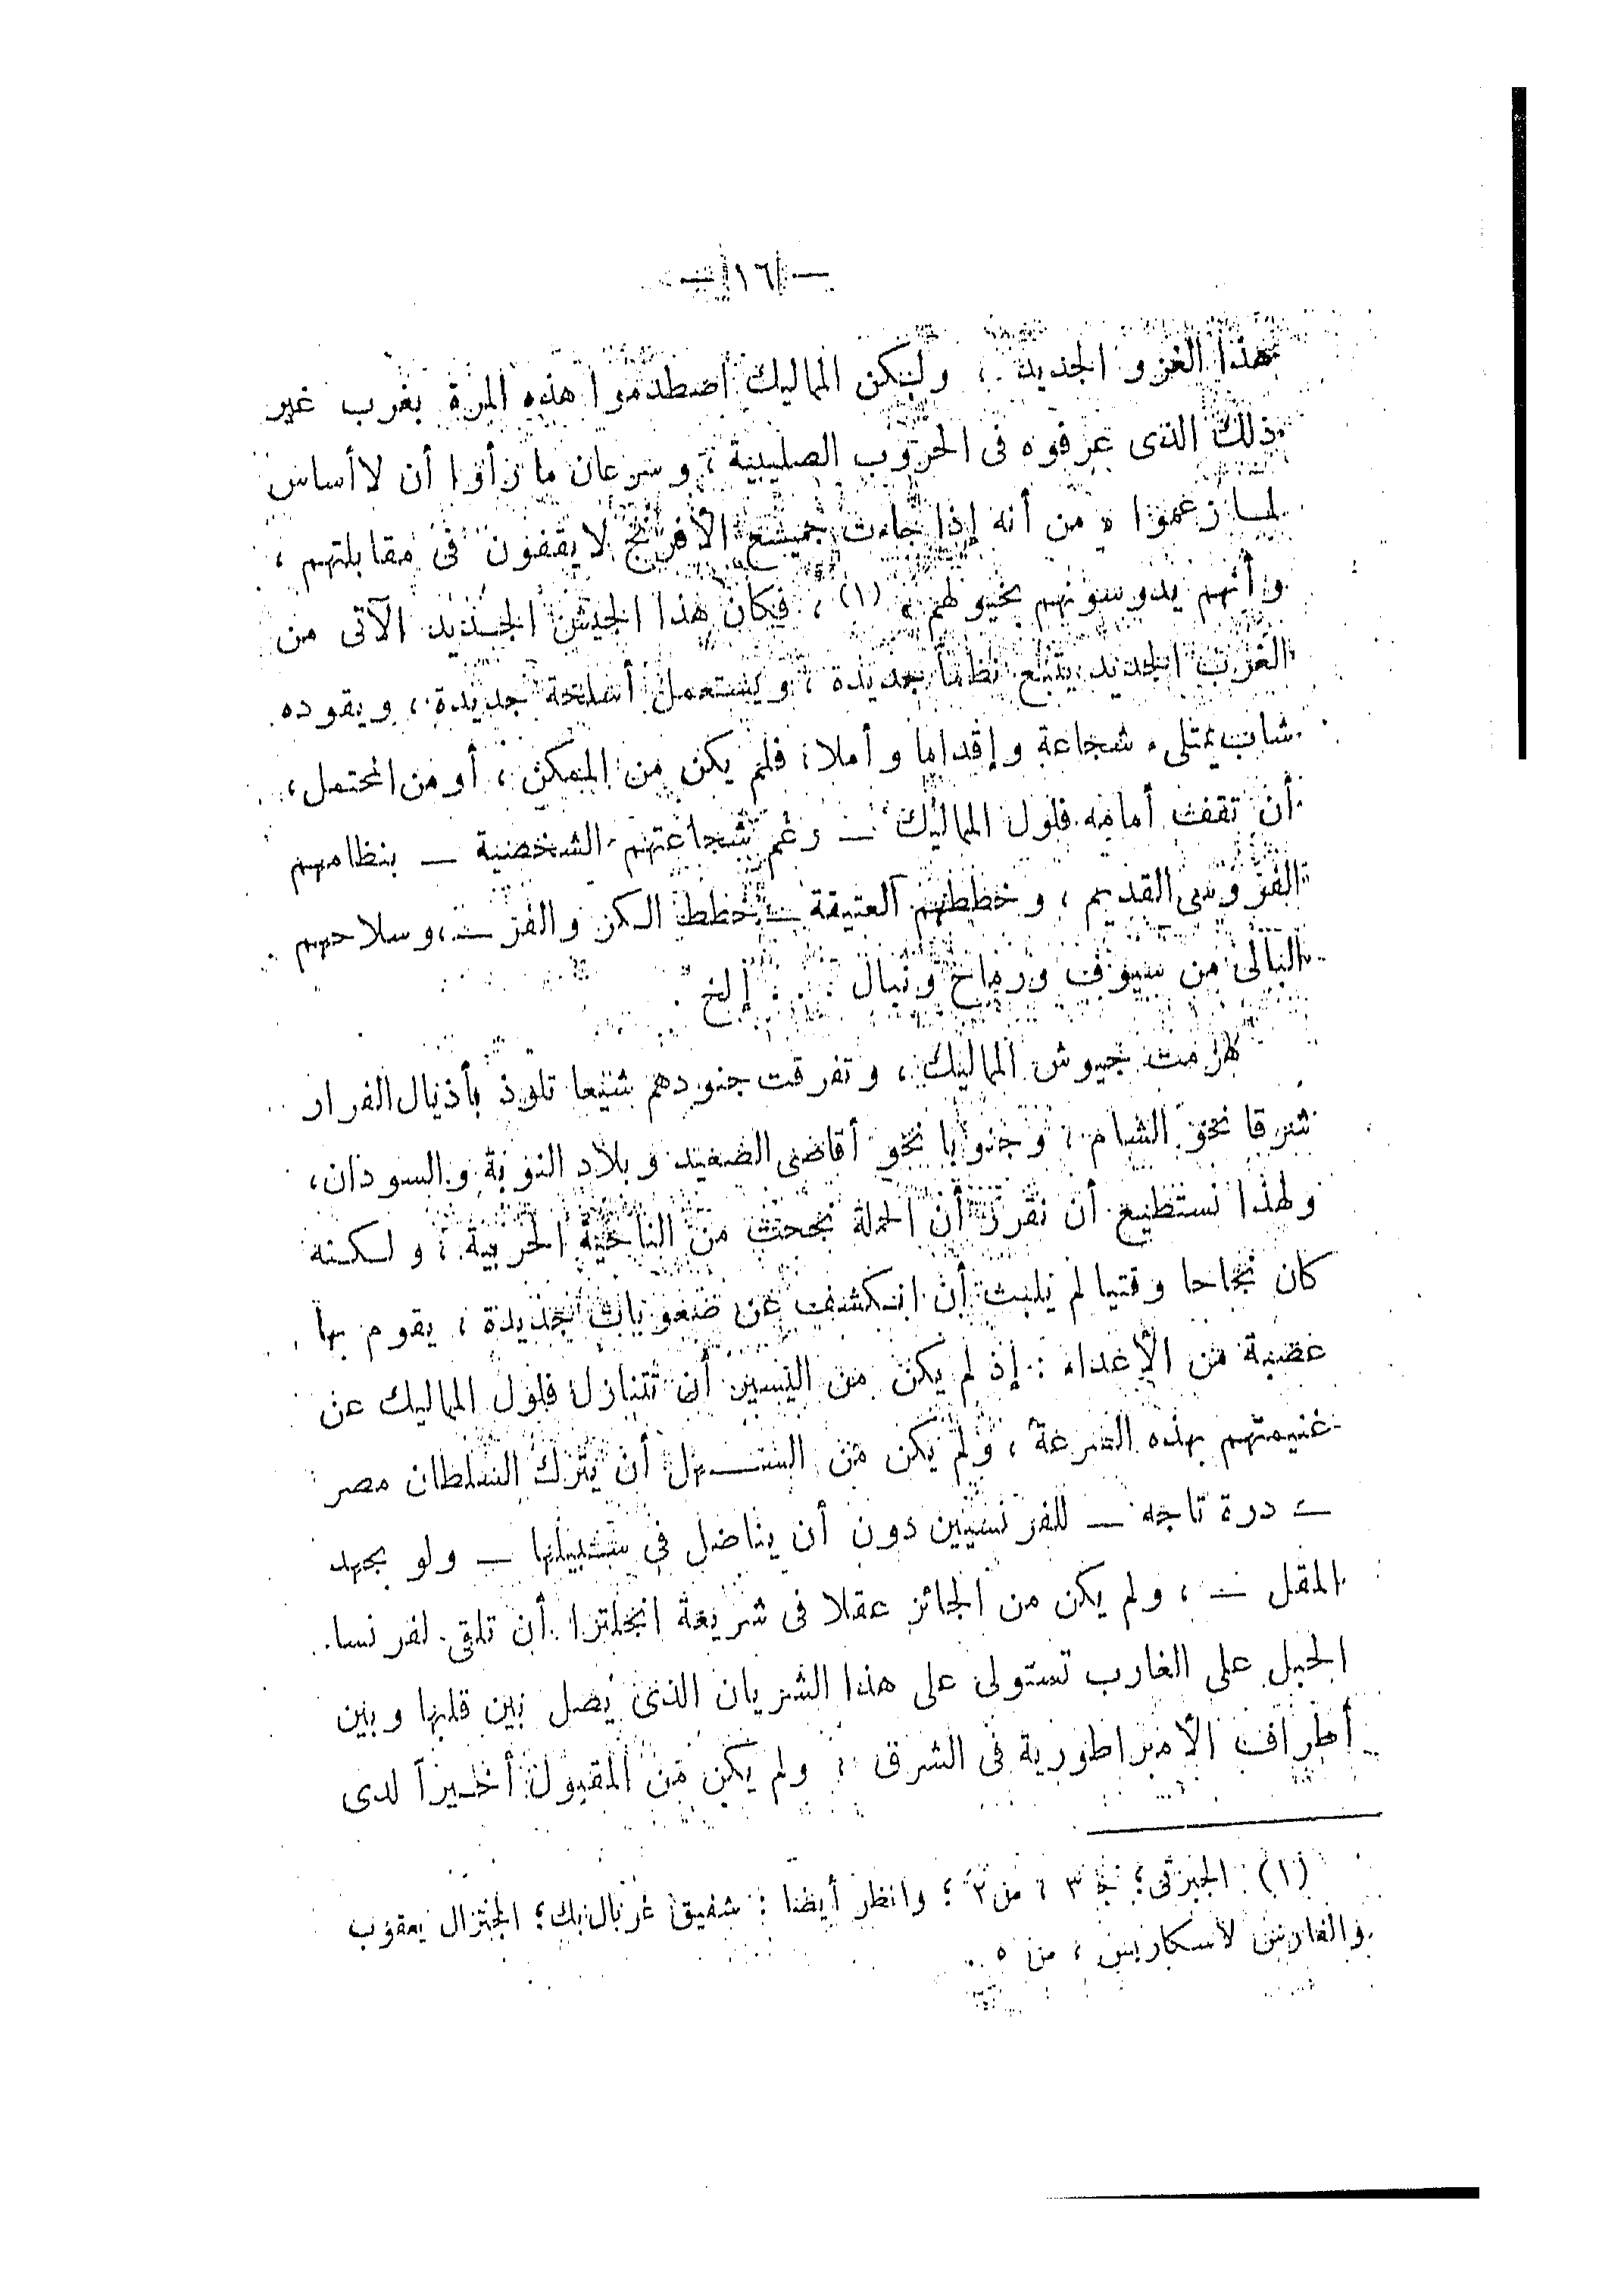 — ١٦ —
هذا الغزو الجديد ، ولكن المماليك اصطدموا هذه المرة بغرب غير
ذلك الذى عرفوه فى الحروب الصليبية ، وسرعان ما رأوا أن لا أساس
لما زعموا « من أنه إذا جاءت جميع الأفرنج لا يقفون فى مقابلتهم ،
وأنهم يدوسونهم بخيولهم » (١) ، فكان هذا الجيش الجديد الآتى من
الغرب الجديد يتبع نظما جديدة ، ويستعمل أسلحة جديدة ، ويقوده
شاب يمتلىء شجاعة وإقداما وأملا ؛ فلم يكن من الممكن ، أو من المحتمل ،
أن تقف أمامه فلول المماليك — رغم شجاعتهم الشخصية — بنظامهم
الفروسى القديم ، وخططهم العتيقة — خطط الكر والفر — ، وسلاحهم
البالى من سيوف ورماح ونبال . . . إلخ .
هزمت جيوش المماليك ، وتفرقت جنودهم شيعا تلوذ بأذيال الفرار
شرقا نحو الشام ، وجنوبا نحو أقاصى الصعيد وبلاد النوبة والسودان ،
ولهذا نستطيع أن نقرر أن الحملة نجحت من الناحية الحربية ، ولكنه
كان نجاحا وقتيا لم يلبث أن انكشف عن صعوبات جديدة ، يقوم بها
عصبة من الأعداء : إذ لم يكن من اليسير أن تتنازل فلول المماليك عن
غنيمتهم بهذه السرعة ، ولم يكن من السهل أن يترك السلطان مصر
— درة تاجه — للفرنسيين دون أن يناضل فى سبيلها — ولو بجهد
المقل — ، ولم يكن من الجائز عقلا فى شريعة انجلترا أن تلقى لفرنسا
الحبل على الغارب تستولى على هذا الشريان الذى يصل بين قلبها وبين
أطراف الأمبراطورية فى الشرق ، ولم يكن من المقبول أخيراً لدى
(١) الجبرتى ؛ ج ٣ ، ص ٢ ؛ وانظر أيضا : شفيق غربال بك ؛ الجنرال يعقوب
والفارس لاسكاريس ، ص ٥ .